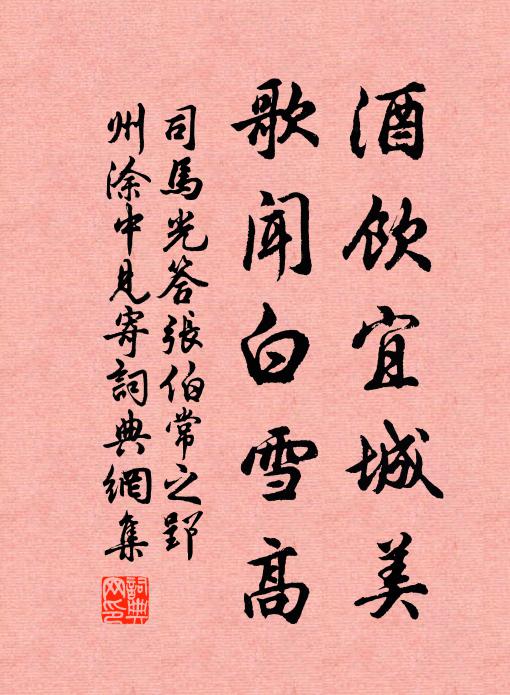 酒饮宜城美
歌闻白雪高
司马光答張伯常之郢
州涂中見寄詞典網集
詞典網印